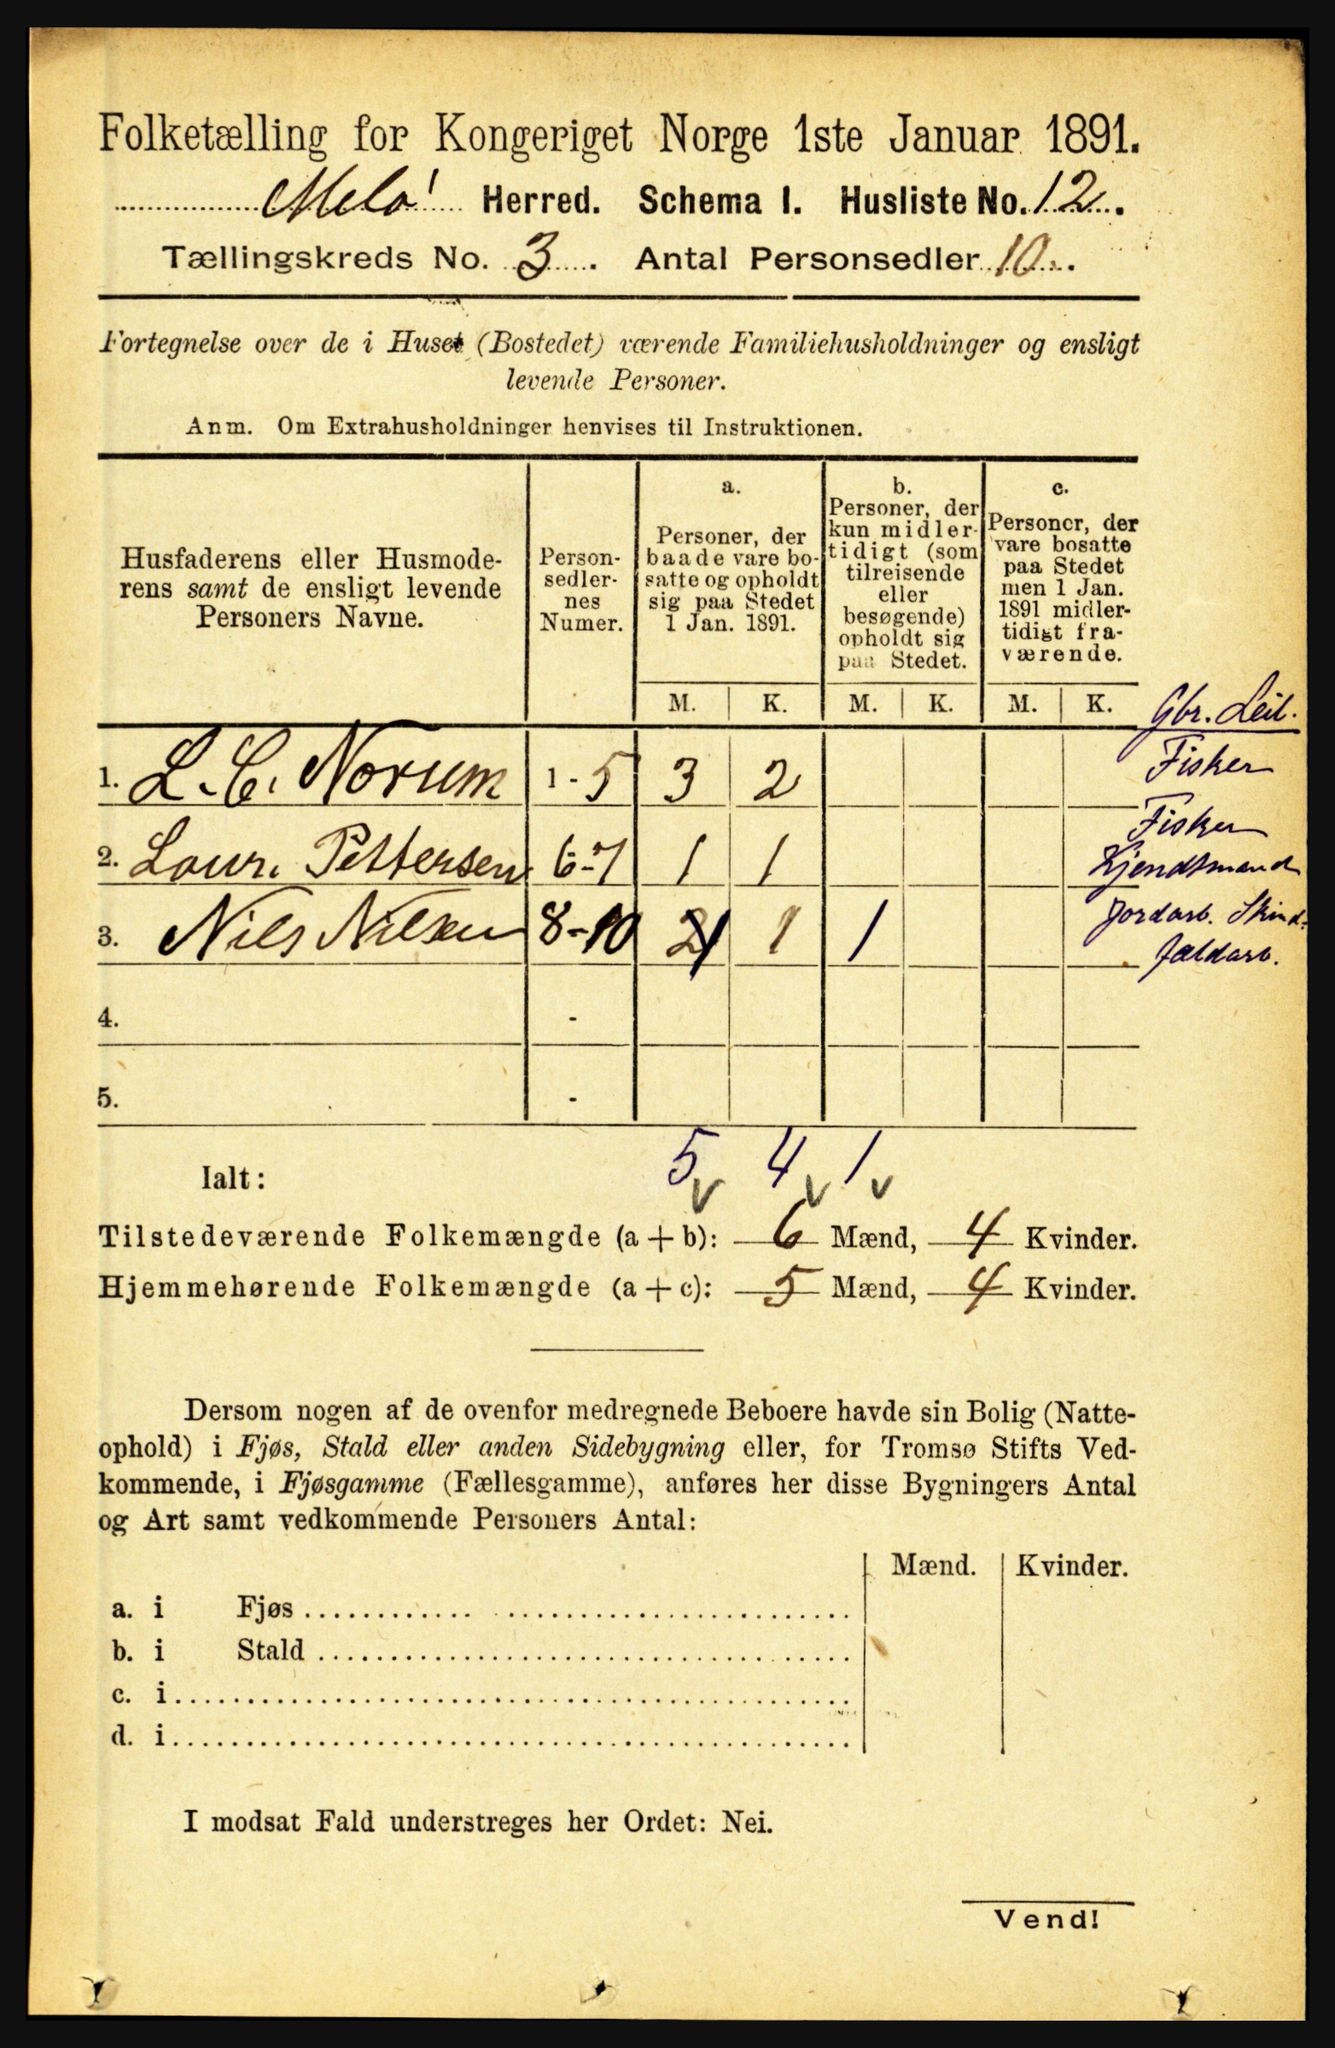 Folketælling for Kongeriget Norge 1ste Januar 1891.
Melø Herred. Schema I. Husliste No. 12.
Tællingskreds No. 3. Antal Personsedler 10.
Fortegnelse over de i Huset (Bostedet) værende Familiehusholdninger og ensligt
levende Personer.
Anm. Om Extrahusholdninger henvises til Instruktionen.
Husfaderens eller Husmode-
rens samt de ensligt levende
Personers Navne.
Person-
sedler-
nes
Numer.
a.
Personer, der
baade vare bo-
satte og opholdt
sig paa Stedet
1 Jan. 1891.
b.
Personer, der
kun midler-
tidigt (som
tilreisende
eller
besøgende)
opholdt sig
paa Stedet.
c.
Personer, der
vare bosatte
paa Stedet
men 1 Jan.
1891 midler-
tidigt fra-
værende.
M. K. M. K. M. K.
Gbr. Leil.
Fisker
1. L. C. Norum 1 - 5 3 2
Fisker
2. Laur. Pettersen 6-7 1 1
3. Nils Nilsen 8-10 1 1 1
Jordarb.
4. -
5. -
Ialt: 5 4 1
Tilstedeværende Folkemængde (a + b): 6 Mænd, 4 Kvinder.
Hjemmehørende Folkemængde (a + c): 5 Mænd, 4 Kvinder.
Dersom nogen af de ovenfor medregnede Beboere havde sin Bolig (Natte-
ophold) i Fjøs, Stald eller anden Sidebygning eller, for Tromsø Stifts Ved-
kommende, i Fjøsgamme (Fællesgamme), anføres her disse Bygningers Antal
og Art samt vedkommende Personers Antal:
Mænd. Kvinder.
a. i Fjøs
b. i Stald
c. i
d. i
I modsat Fald understreges her Ordet: Nei.
Vend!